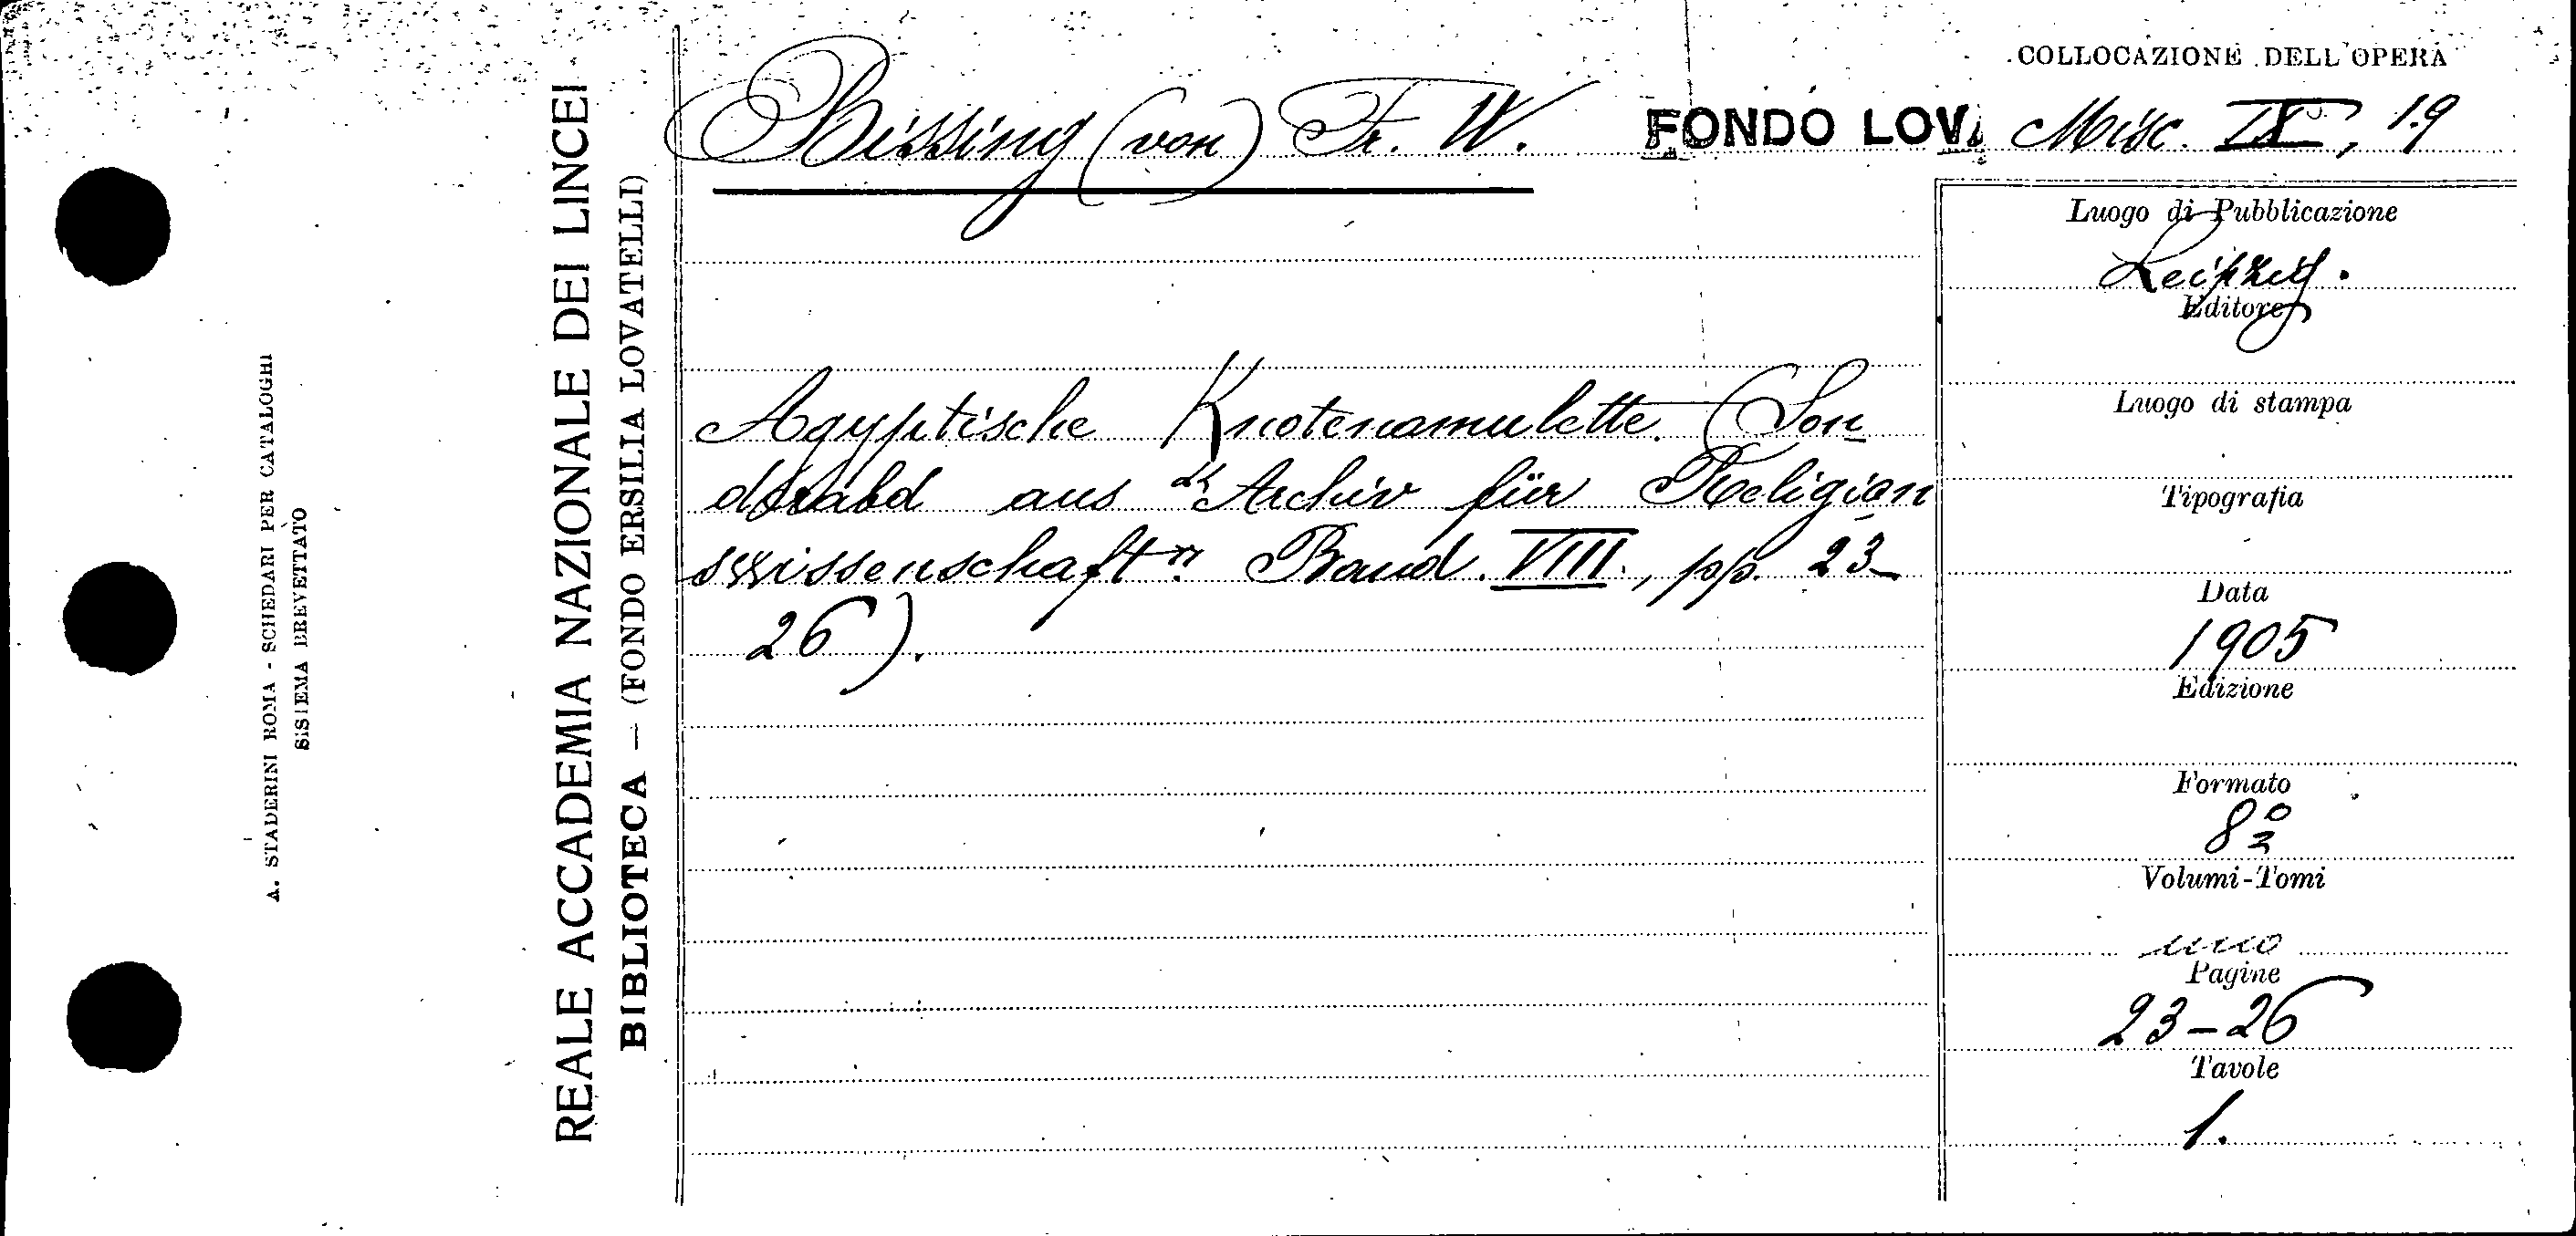 COLLOCAZIONE DELL'OPERA
Bissing (von) Fr. W. FONDO LOV. Misc. IX, 19
Agyptische Knotenamulette. (Son
aus "Archiv für Religion
swissenschaft". Band. VIII., pp. 23-
26).
Luogo di Pubblicazione
Leipzig.
Editore
Luogo di stampa
Tipografia
Data
1905
Edizione
Formato
8º
Volumi-Tomi
uno
Pagine
23-26
Tavole
1.
REALE ACCADEMIA NAZIONALE DEI LINCEI
BIBLIOTECA — (FONDO ERSILIA LOVATELLI)
A. STADERINI ROMA - SCHEDARI PER CATALOGHI
SISTEMA BREVETTATO